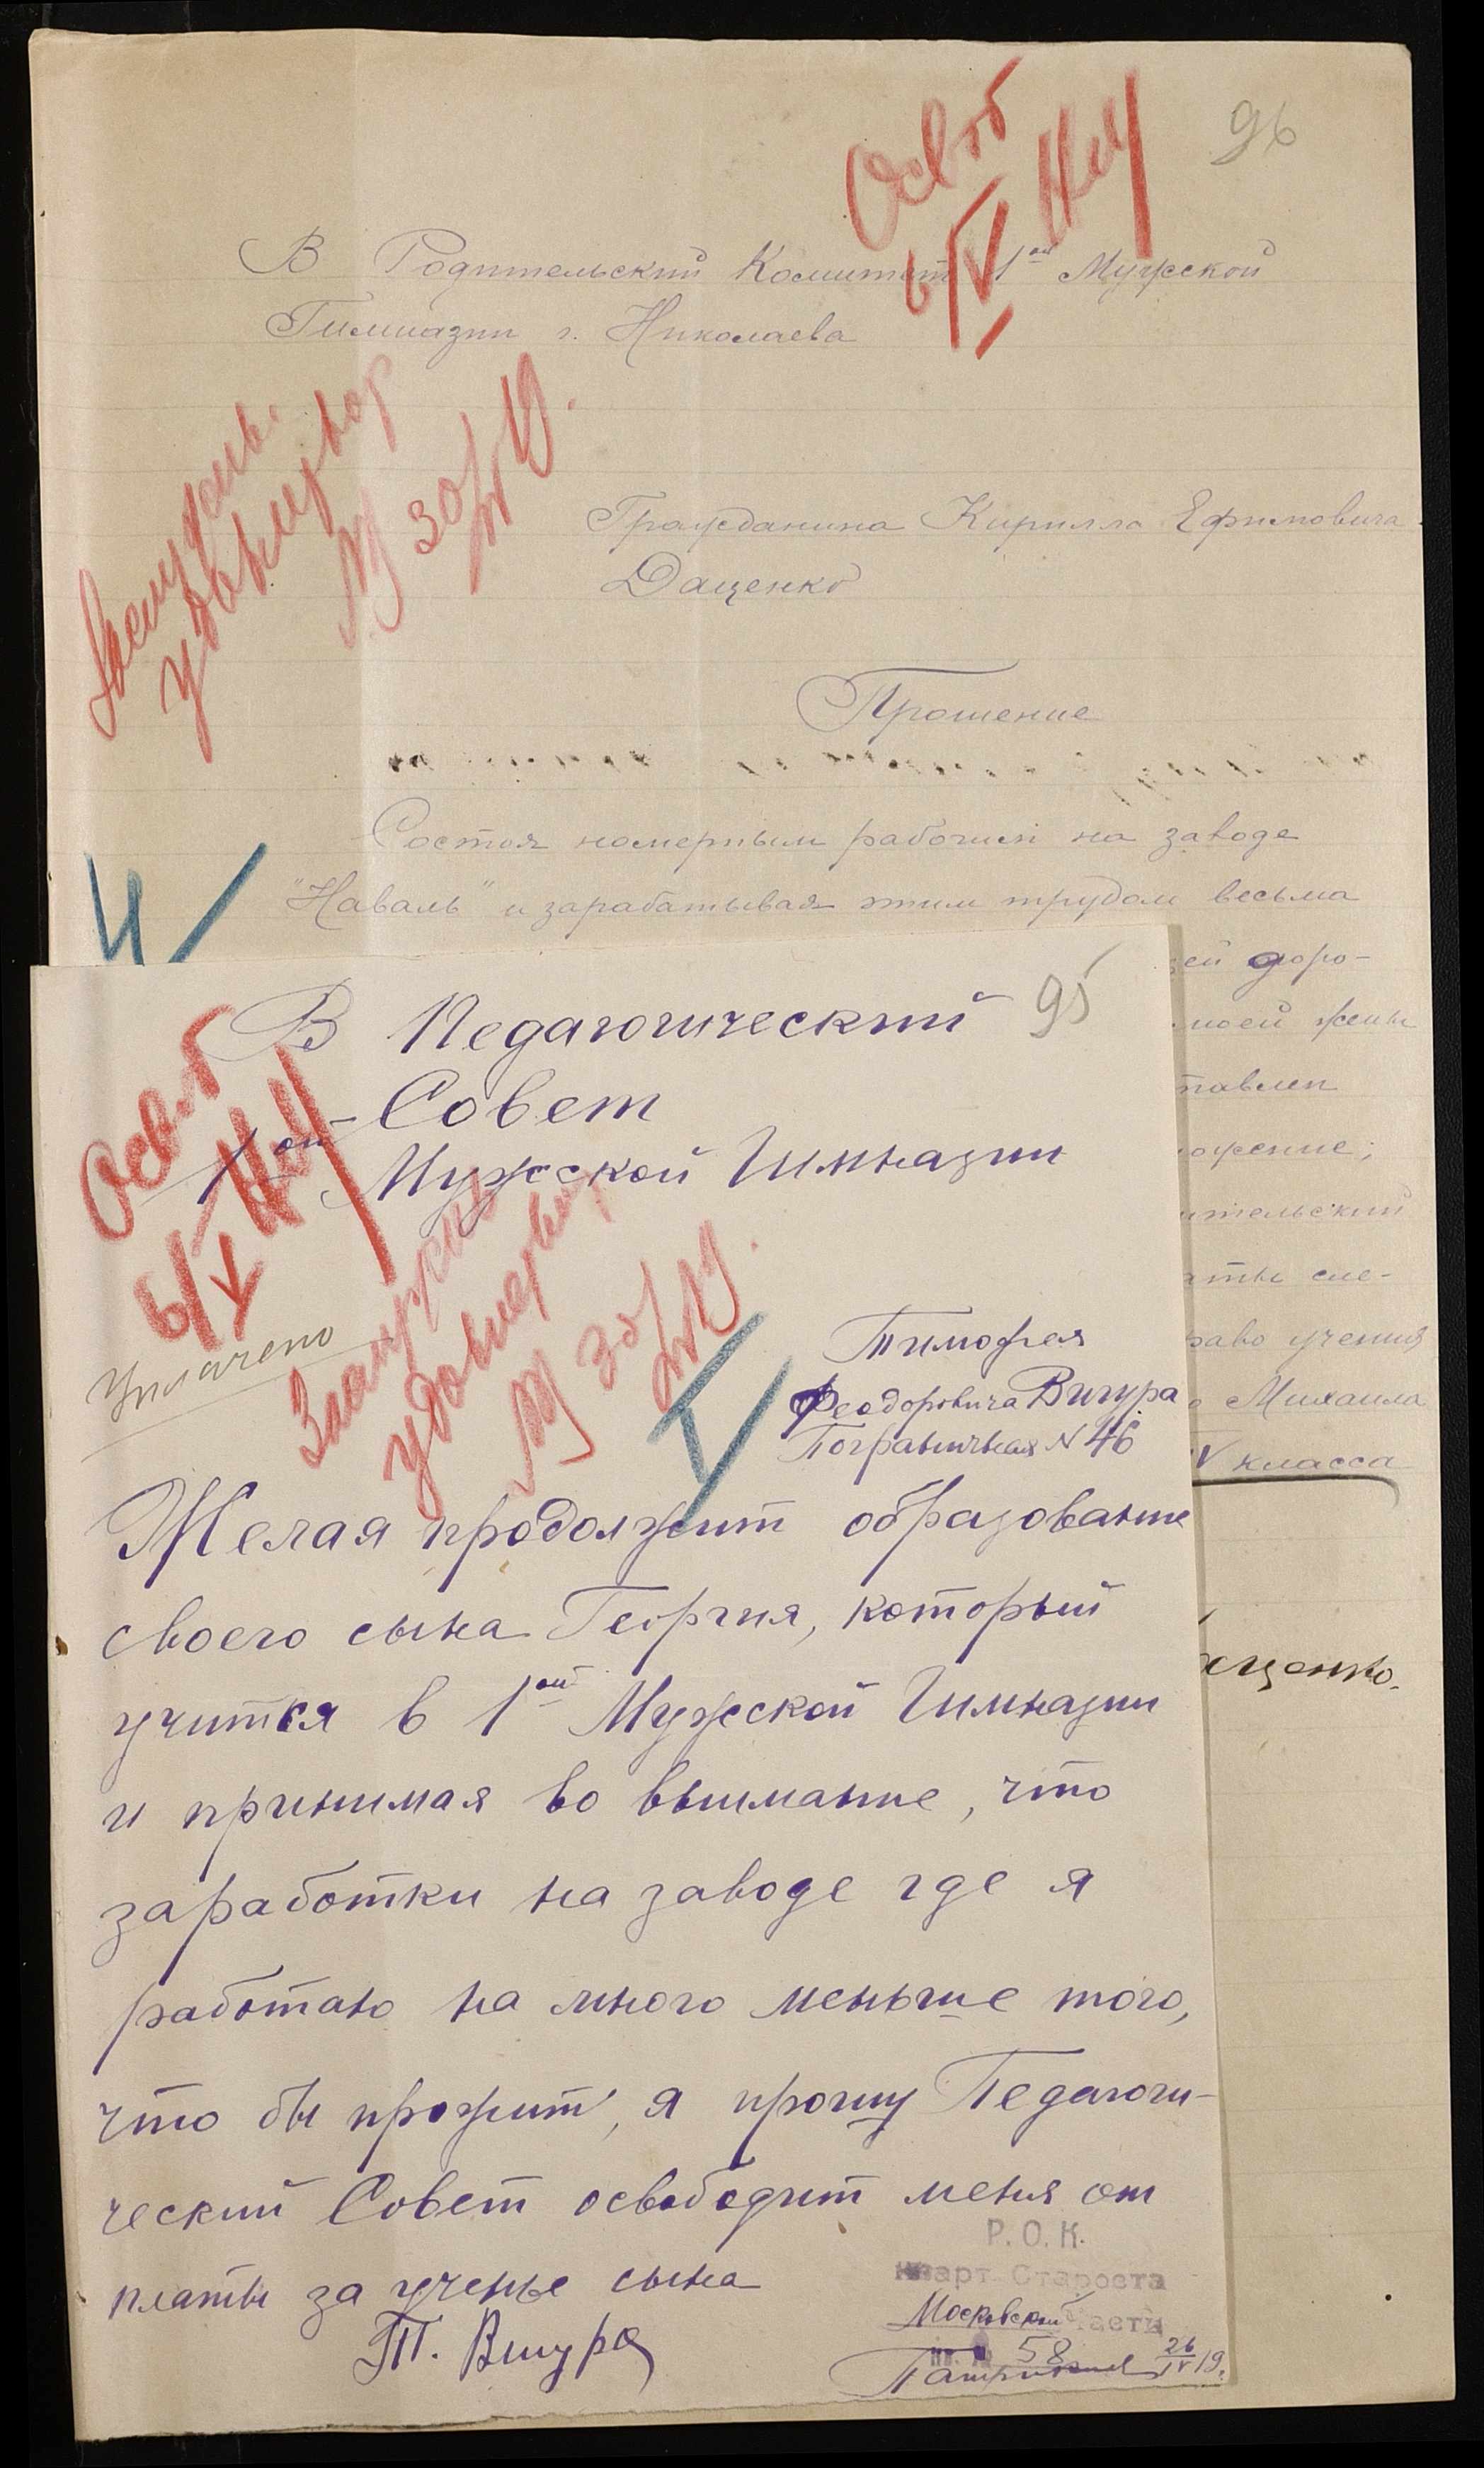 96
Освоб
6/V
В Родительский Комитет 1ой Мужской
Гимназии г. Николаева
Гражданина Кирилла Ефимовича
Даценко
Прошение
Состоя номерным рабочим на заводе
"Наваль" и зарабатывая этим трудом весьма
ей доро-
моей жены
тавлен
ожение;
ительский
аты сле-
раво учения
Михаила
IV класса
аценко.
95
В Педагогический
Совет
1ой Мужской Гимназии
Освоб
6/V
Уплачено
Тимофея
Феодоровича Вигура
Пограничная N 46
Желая продолжит образование
своего сына Георгия, который
учится в 1ой Мужской Гимназии
и принимая во внимание, что
заработки на заводе где я
работаю на много меньше того,
что бы прожит, я прошу Педагоги-
ческий Совет освободит меня от
платы за ученье сына
Т. Вигура
Р. О. К.
Кварт. Староста
Московской части
58
26/IV 19.